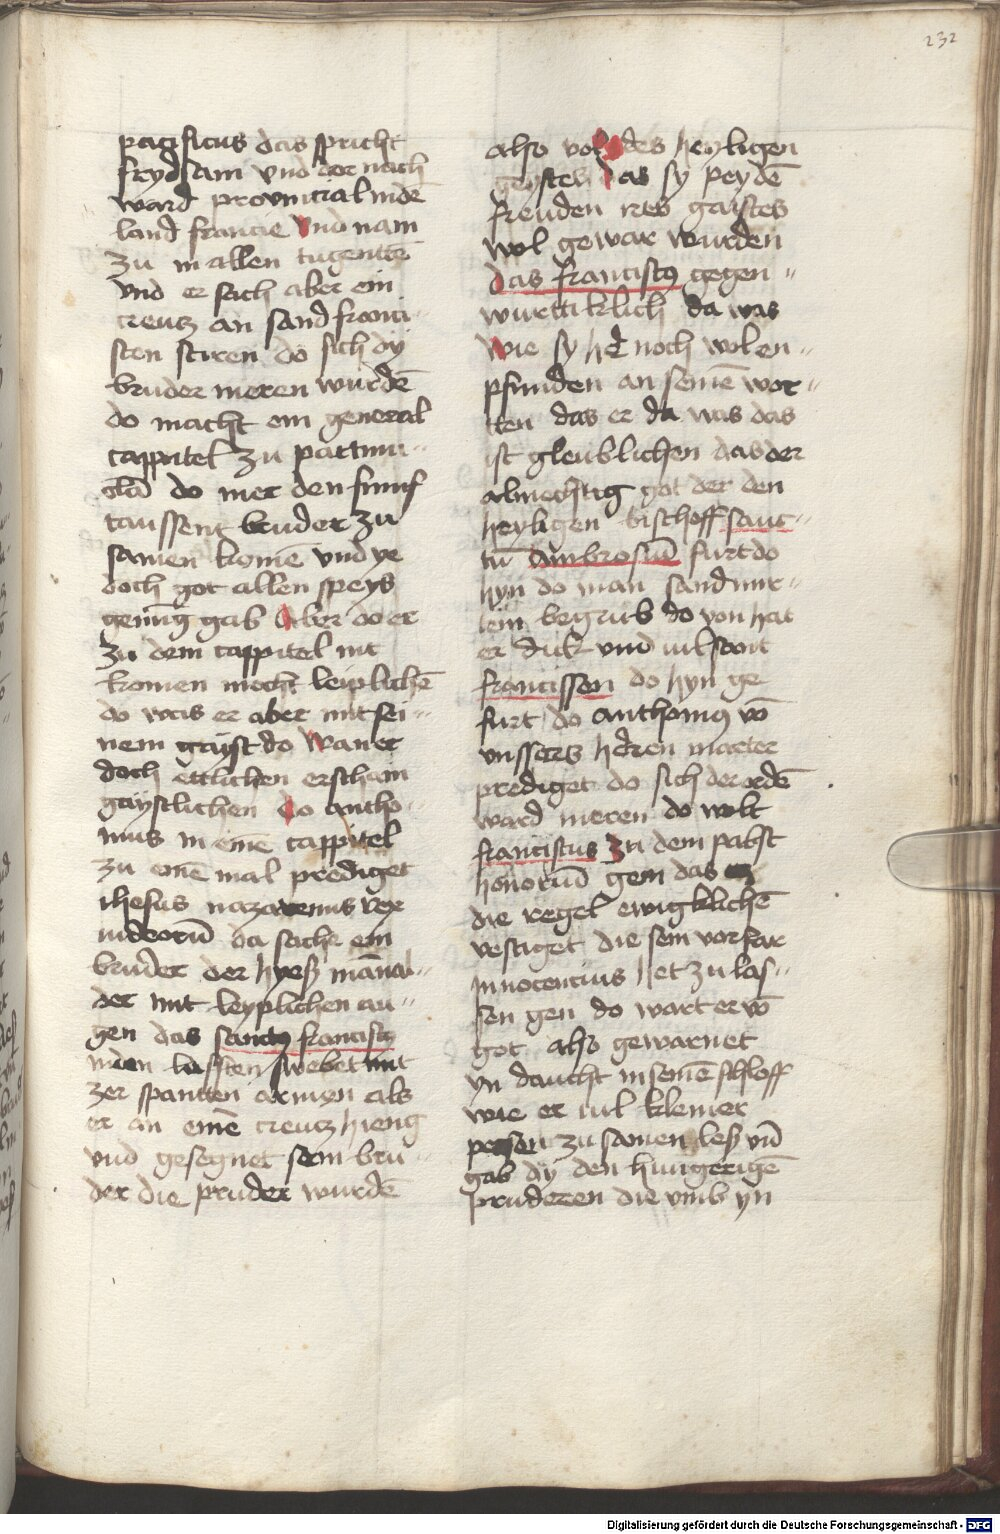 232
pacificus das spricht
frydsam vnd dor nach
ward provincial in dē
land francie vnd nam
zu in allen tugentē
vnd er sach aber ein
creutz an sand franci-
sten stiren do sich dy
bruder meren wurdē
do macht ein general
cappitel zu partiun-
cla do mer den funf
taussent bruder zu
samen komē vnd ye
doch got allen speys
genug gab Aber do er
zu dem cappitel nit
komen mocht leiplichē
do was er aber mit sei-
nem gayst do wan er
doch ettlichen erschain
gaystlichen do antho-
nius in einē cappitel
zu einē mal prediget
ihesus nazarenus rex
iudeorū da sache ein
bruder der hyeß mānal-
der mit leyplichen au-
gen das sanctus franciscus
in den lufften swebet mit
zer spanten armen als
er an einē creutz hieng
vnd gesegnet sein bru-
der die pruder wurdē
also vol des heyligen
geystes das sy peydē
freuden irés gaistes
wol gewar wurden
das franciscus gegen-
wurttiklich da was
wie sy her noch wol en-
pfunden an seinē wor-
tten das er da was das
ist gleublichen das der
almechtig got der den
heyligen bischoff sanc-
tū Ambrosiū furt do
hyn do man sand mer-
tein begrub do von hat
er dick vnd vil sant
francissen do hyn ge
furt do anthonius vō
vnssers heren marter
prediget do sich der ordē
ward meren do wolt
franciscus zu dem pabst
honoriū gein das
die regel ewigklichē
vestiget die sein vorfar
Innocencius het zu las-
sen gen do wart er vō
got also gewarnet
yn daucht in seinē schloff
wie er vil kleiner
zu samen leß vnd
gab dy den hungerigē
pruderen die vmb yn
Digitalisierung gefördert durch die Deutsche Forschungsgemeinschaft - DFG